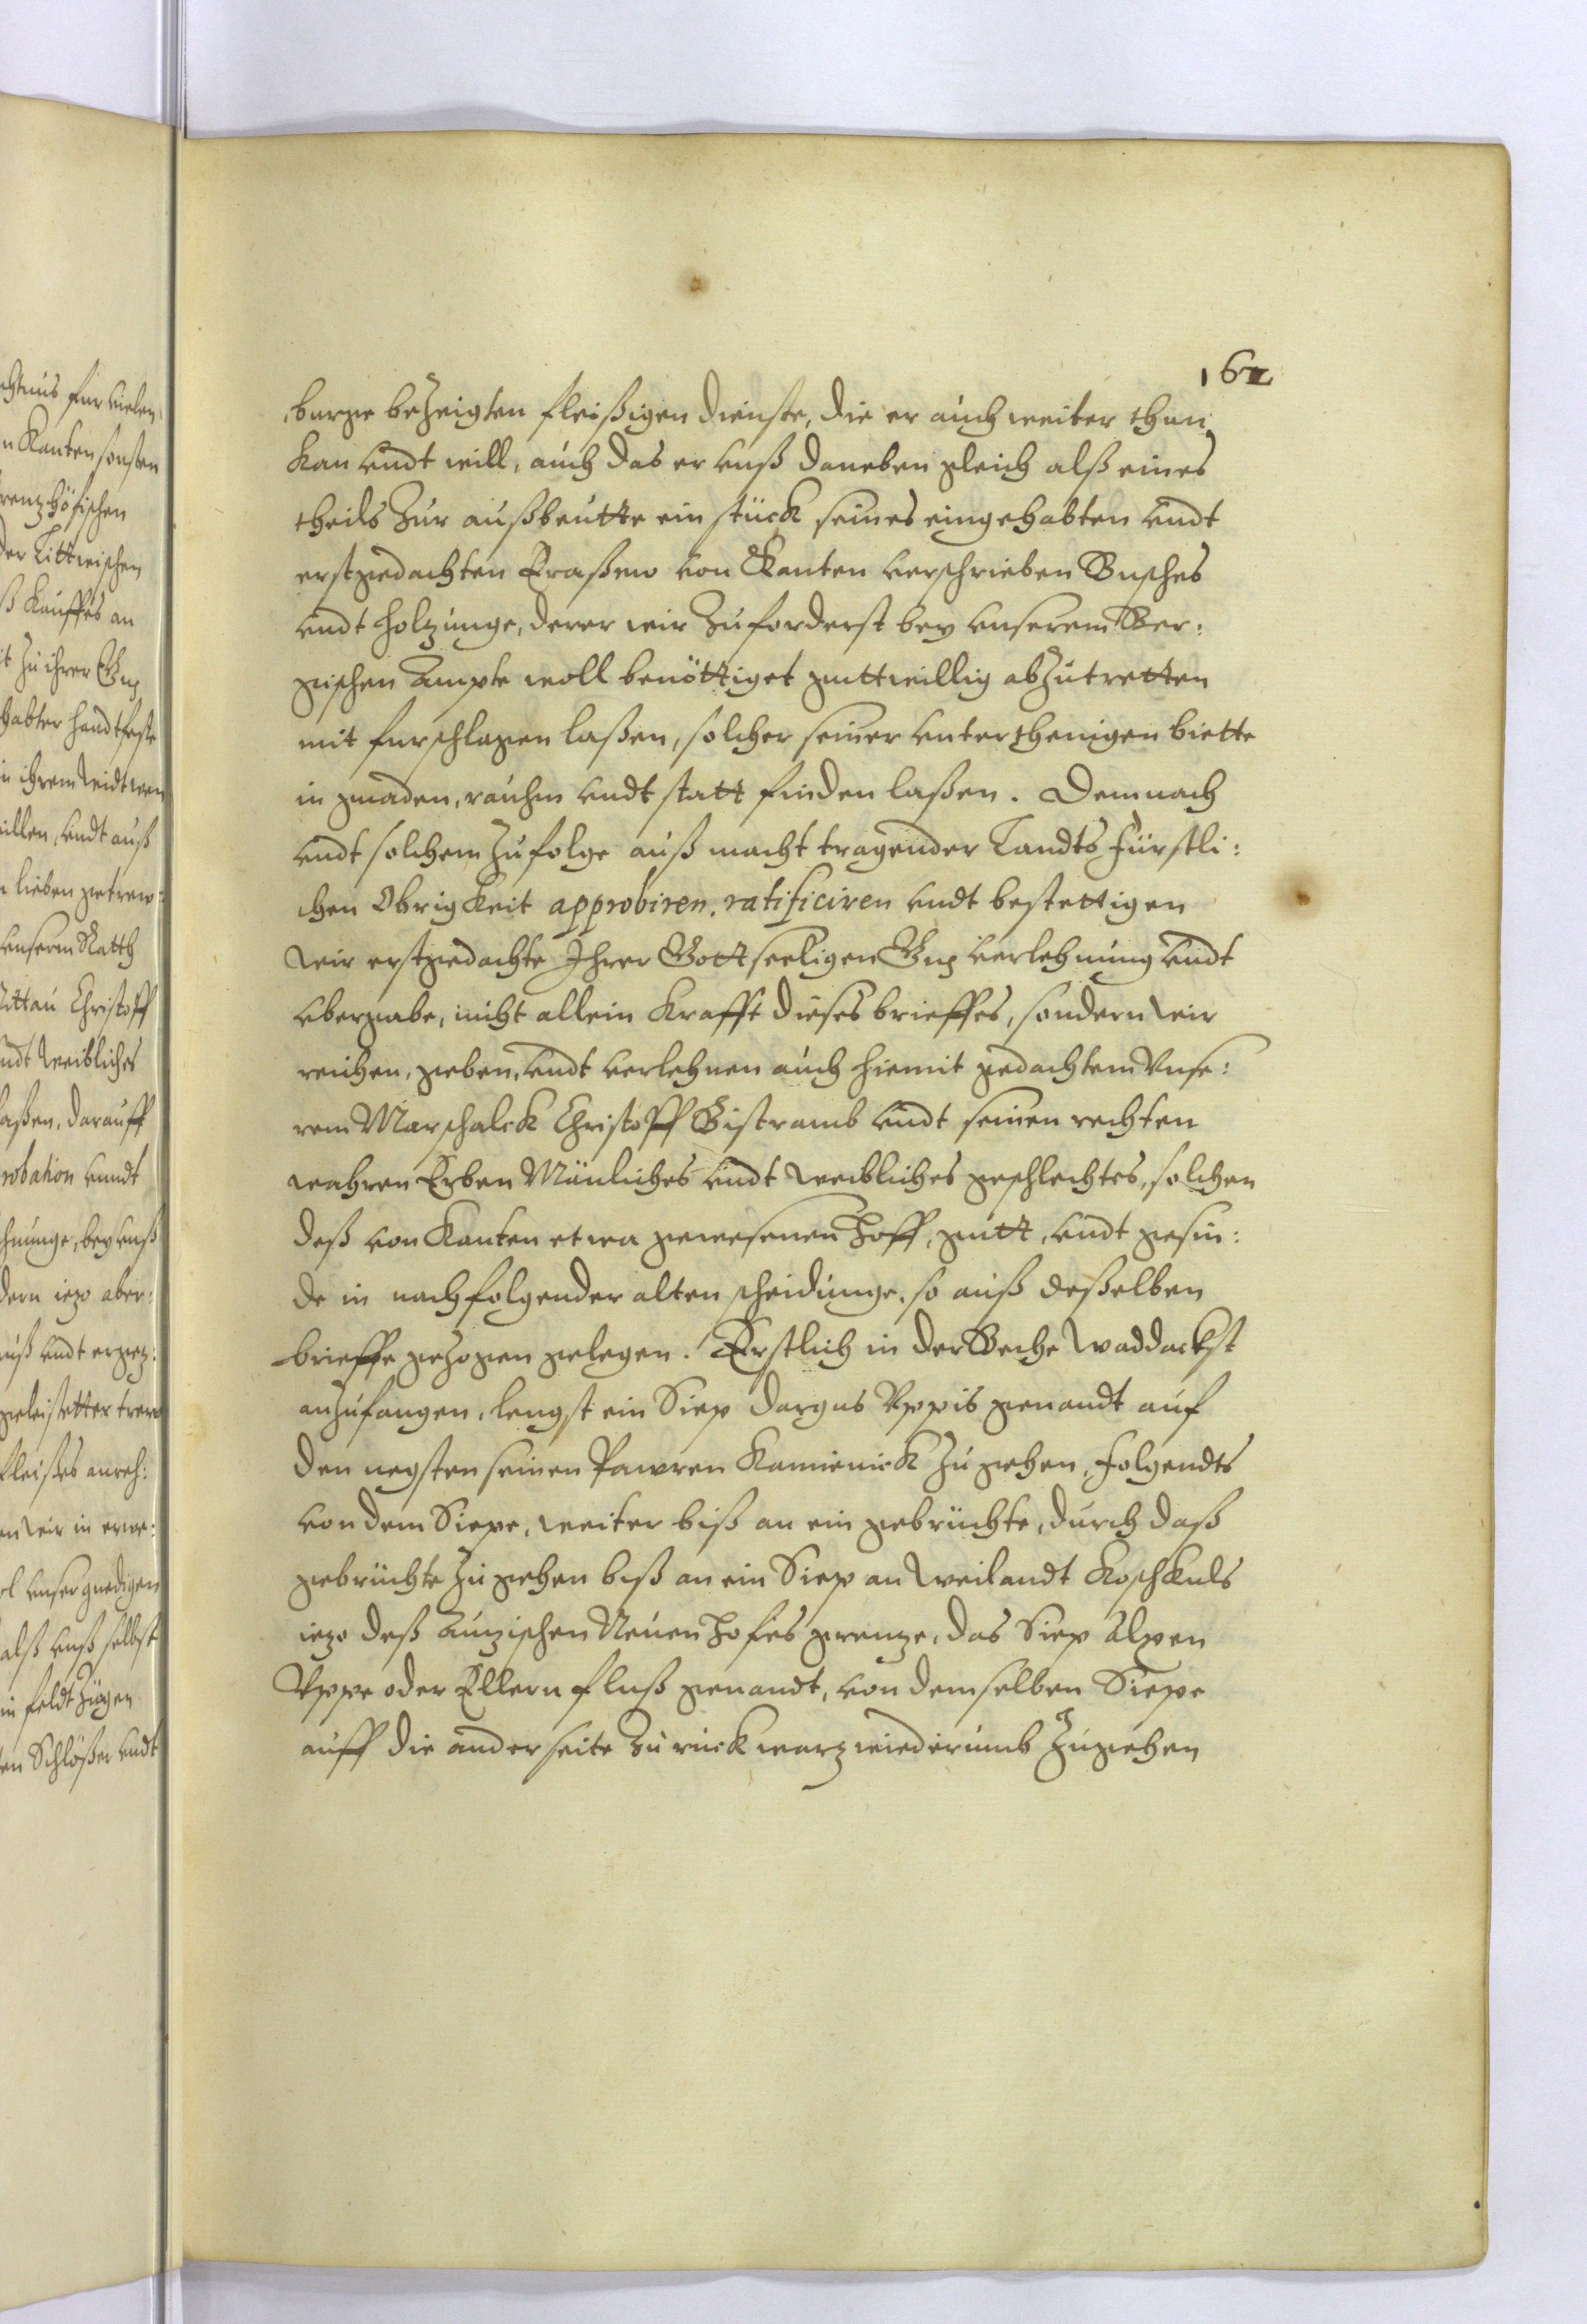 162
burge bezeigten fleißigen dienste, die er auch weiter thun
kan undt will, auch das er unß daneben gleich alß eines
theils zur außbeutte ein stück seines eingehabten undt
erstgedachten Eraßmo von Kanten verschrieben Busches
undt holtzunge, derer wir zuforderst bey unserem Ber:
gischen Ampte woll benöttiget guttwillig abzutretten
mit furschlagen laßen, solcher seiner unterthenigen biette
in gnaden, rauhm undt statt finden laßen. Demnach
undt solchem zufolge auß macht tragender Landts Fürstli:
chen Obrigkeit approbiren, ratificiren undt bestettigen
wir erstgedachte Ihrer Gottseeligen Gnd verlehnung undt
ubergabe, nicht allein Krafft dieses brieffes, sondern wir
reichen, geben, undt verlehnen auch hiemit gedachtem Unse:
rem Marschalck Christoff Bistramb undt seinen rechten
wahren Erben Mänliches undt weibliches geschlechtes, solchen
deß von Kanten etwa gewesenen Hoff, gutt, undt gesin:
de in nachfolgender alten scheidunge, so auß deßelben
brieffe gezogen gelegen. Erstlich in der Beche Waddackst
anzufangen, lengst ein Siep dargus Uppis genandt auf
den negsten seinen Pawren Kaminick zu gehen, folgendts
von dem Siepe, weiter biß an ein gebrüchte, durch daß
gebrüchte zu gehen biß an ein Siep an weilandt Koschkuls
iezo deß Auzischen Neuen Hofes grenze, das Siep Alxen
Uppe oder Ellern fluß genandt, von demselben Siepe
auff die ander seite zu rück warz wiederumb zugehen